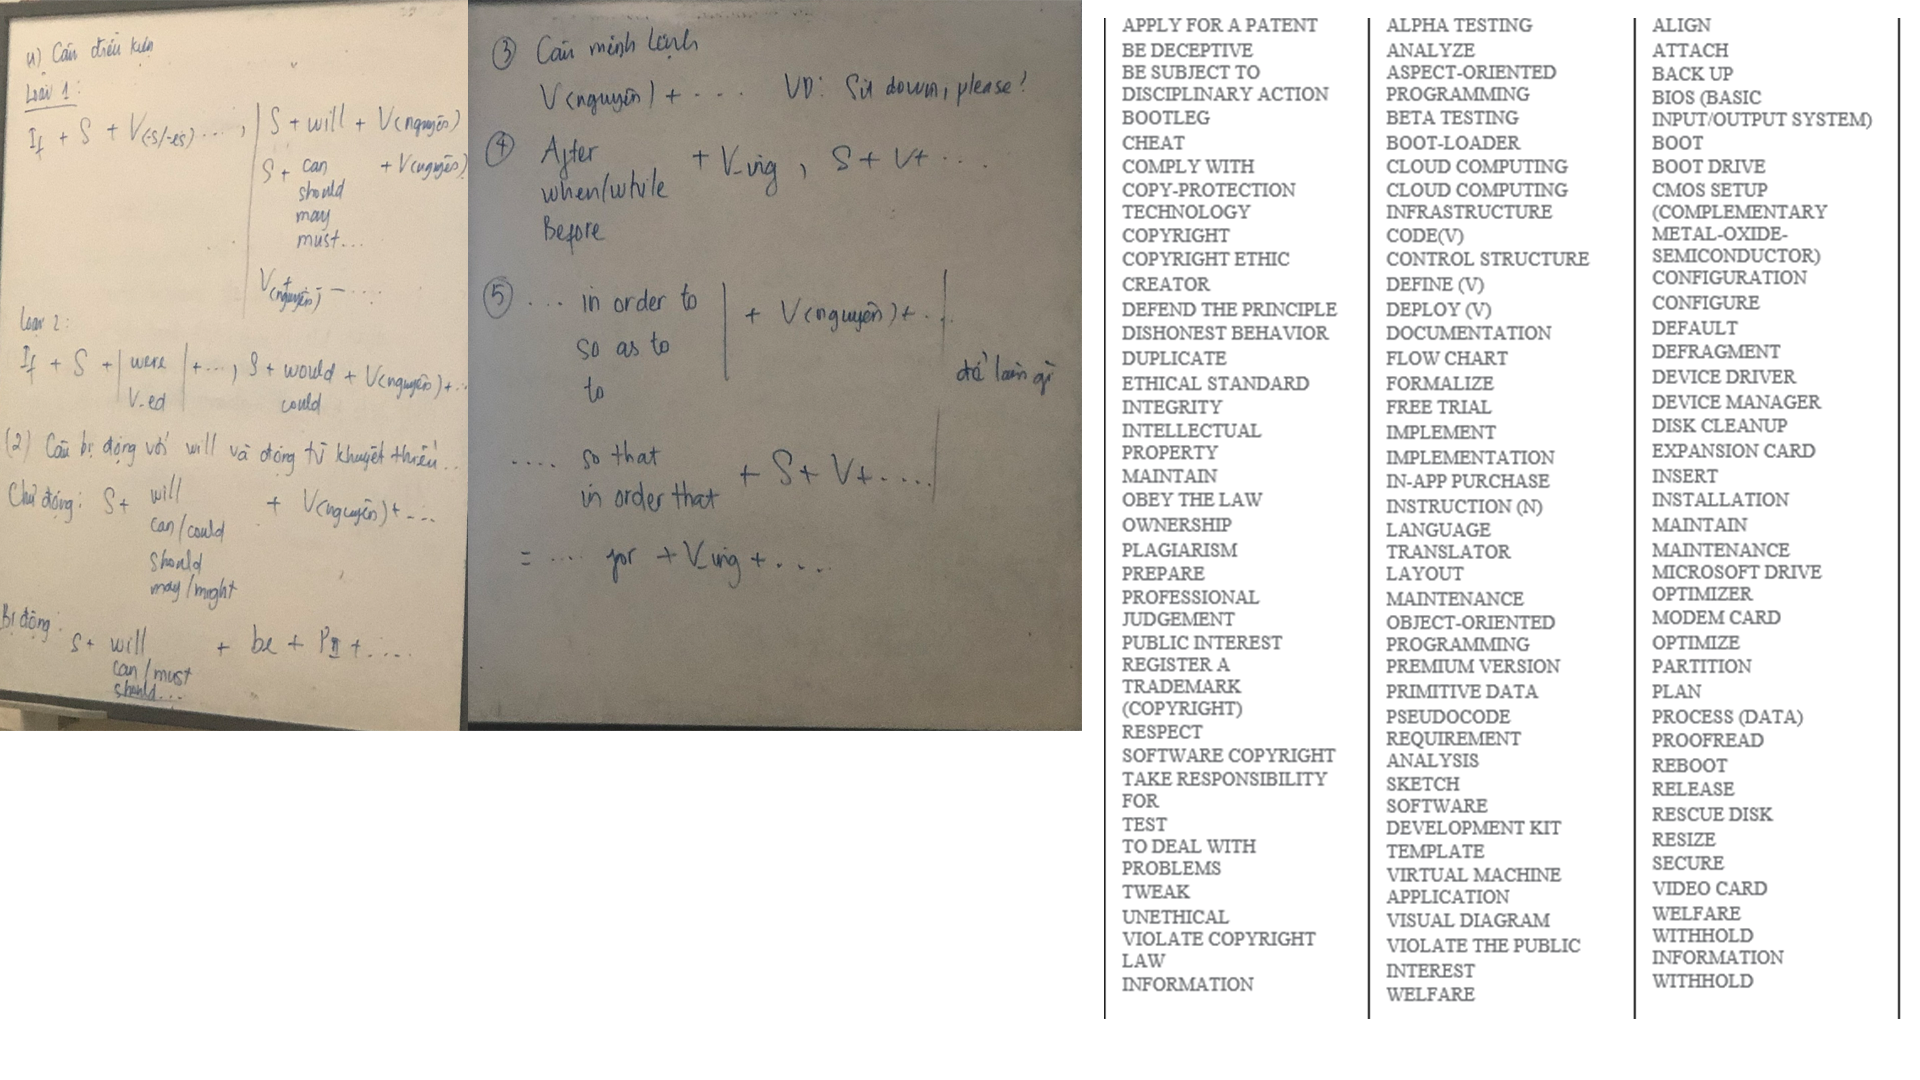 1) Câu điều kiện
Loại 1:
If + S + V(-s/-es) ..., S + will + V(nguyên)
S + can + V(nguyên)
should
may
must...
V(nguyên) + ....
Loại 2:
If + S + were + ..., S + would + V(nguyên) + ...
V-ed could
(2) Câu bị động với will và động từ khuyết thiếu...
Chủ động: S + will + V(nguyên) + ...
can/could
should
may/might
Bị động:
S + will + be + PII + ....
can/must
should...
③ Câu mệnh lệnh
V(nguyên) + .... VD: Sit down, please!
④ After + V-ing, S + V + ....
when/while
Before
⑤ ... in order to + V(nguyên) + ...
so as to
to
để làm gì
.... so that + S + V + .....
in order that
= .... for + V-ing + ....
APPLY FOR A PATENT
BE DECEPTIVE
BE SUBJECT TO
DISCIPLINARY ACTION
BOOTLEG
CHEAT
COMPLY WITH
COPY-PROTECTION
TECHNOLOGY
COPYRIGHT
COPYRIGHT ETHIC
CREATOR
DEFEND THE PRINCIPLE
DISHONEST BEHAVIOR
DUPLICATE
ETHICAL STANDARD
INTEGRITY
INTELLECTUAL
PROPERTY
MAINTAIN
OBEY THE LAW
OWNERSHIP
PLAGIARISM
PREPARE
PROFESSIONAL
JUDGEMENT
PUBLIC INTEREST
REGISTER A
TRADEMARK
(COPYRIGHT)
RESPECT
SOFTWARE COPYRIGHT
TAKE RESPONSIBILITY
FOR
TEST
TO DEAL WITH
PROBLEMS
TWEAK
UNETHICAL
VIOLATE COPYRIGHT
LAW
INFORMATION
ALPHA TESTING
ANALYZE
ASPECT-ORIENTED
PROGRAMMING
BETA TESTING
BOOT-LOADER
CLOUD COMPUTING
CLOUD COMPUTING
INFRASTRUCTURE
CODE(V)
CONTROL STRUCTURE
DEFINE (V)
DEPLOY (V)
DOCUMENTATION
FLOW CHART
FORMALIZE
FREE TRIAL
IMPLEMENT
IMPLEMENTATION
IN-APP PURCHASE
INSTRUCTION (N)
LANGUAGE
TRANSLATOR
LAYOUT
MAINTENANCE
OBJECT-ORIENTED
PROGRAMMING
PREMIUM VERSION
PRIMITIVE DATA
PSEUDOCODE
REQUIREMENT
ANALYSIS
SKETCH
SOFTWARE
DEVELOPMENT KIT
TEMPLATE
VIRTUAL MACHINE
APPLICATION
VISUAL DIAGRAM
VIOLATE THE PUBLIC
INTEREST
WELFARE
ALIGN
ATTACH
BACK UP
BIOS (BASIC
INPUT/OUTPUT SYSTEM)
BOOT
BOOT DRIVE
CMOS SETUP
(COMPLEMENTARY
METAL-OXIDE-
SEMICONDUCTOR)
CONFIGURATION
CONFIGURE
DEFAULT
DEFRAGMENT
DEVICE DRIVER
DEVICE MANAGER
DISK CLEANUP
EXPANSION CARD
INSERT
INSTALLATION
MAINTAIN
MAINTENANCE
MICROSOFT DRIVE
OPTIMIZER
MODEM CARD
OPTIMIZE
PARTITION
PLAN
PROCESS (DATA)
PROOFREAD
REBOOT
RELEASE
RESCUE DISK
RESIZE
SECURE
VIDEO CARD
WELFARE
WITHHOLD
INFORMATION
WITHHOLD